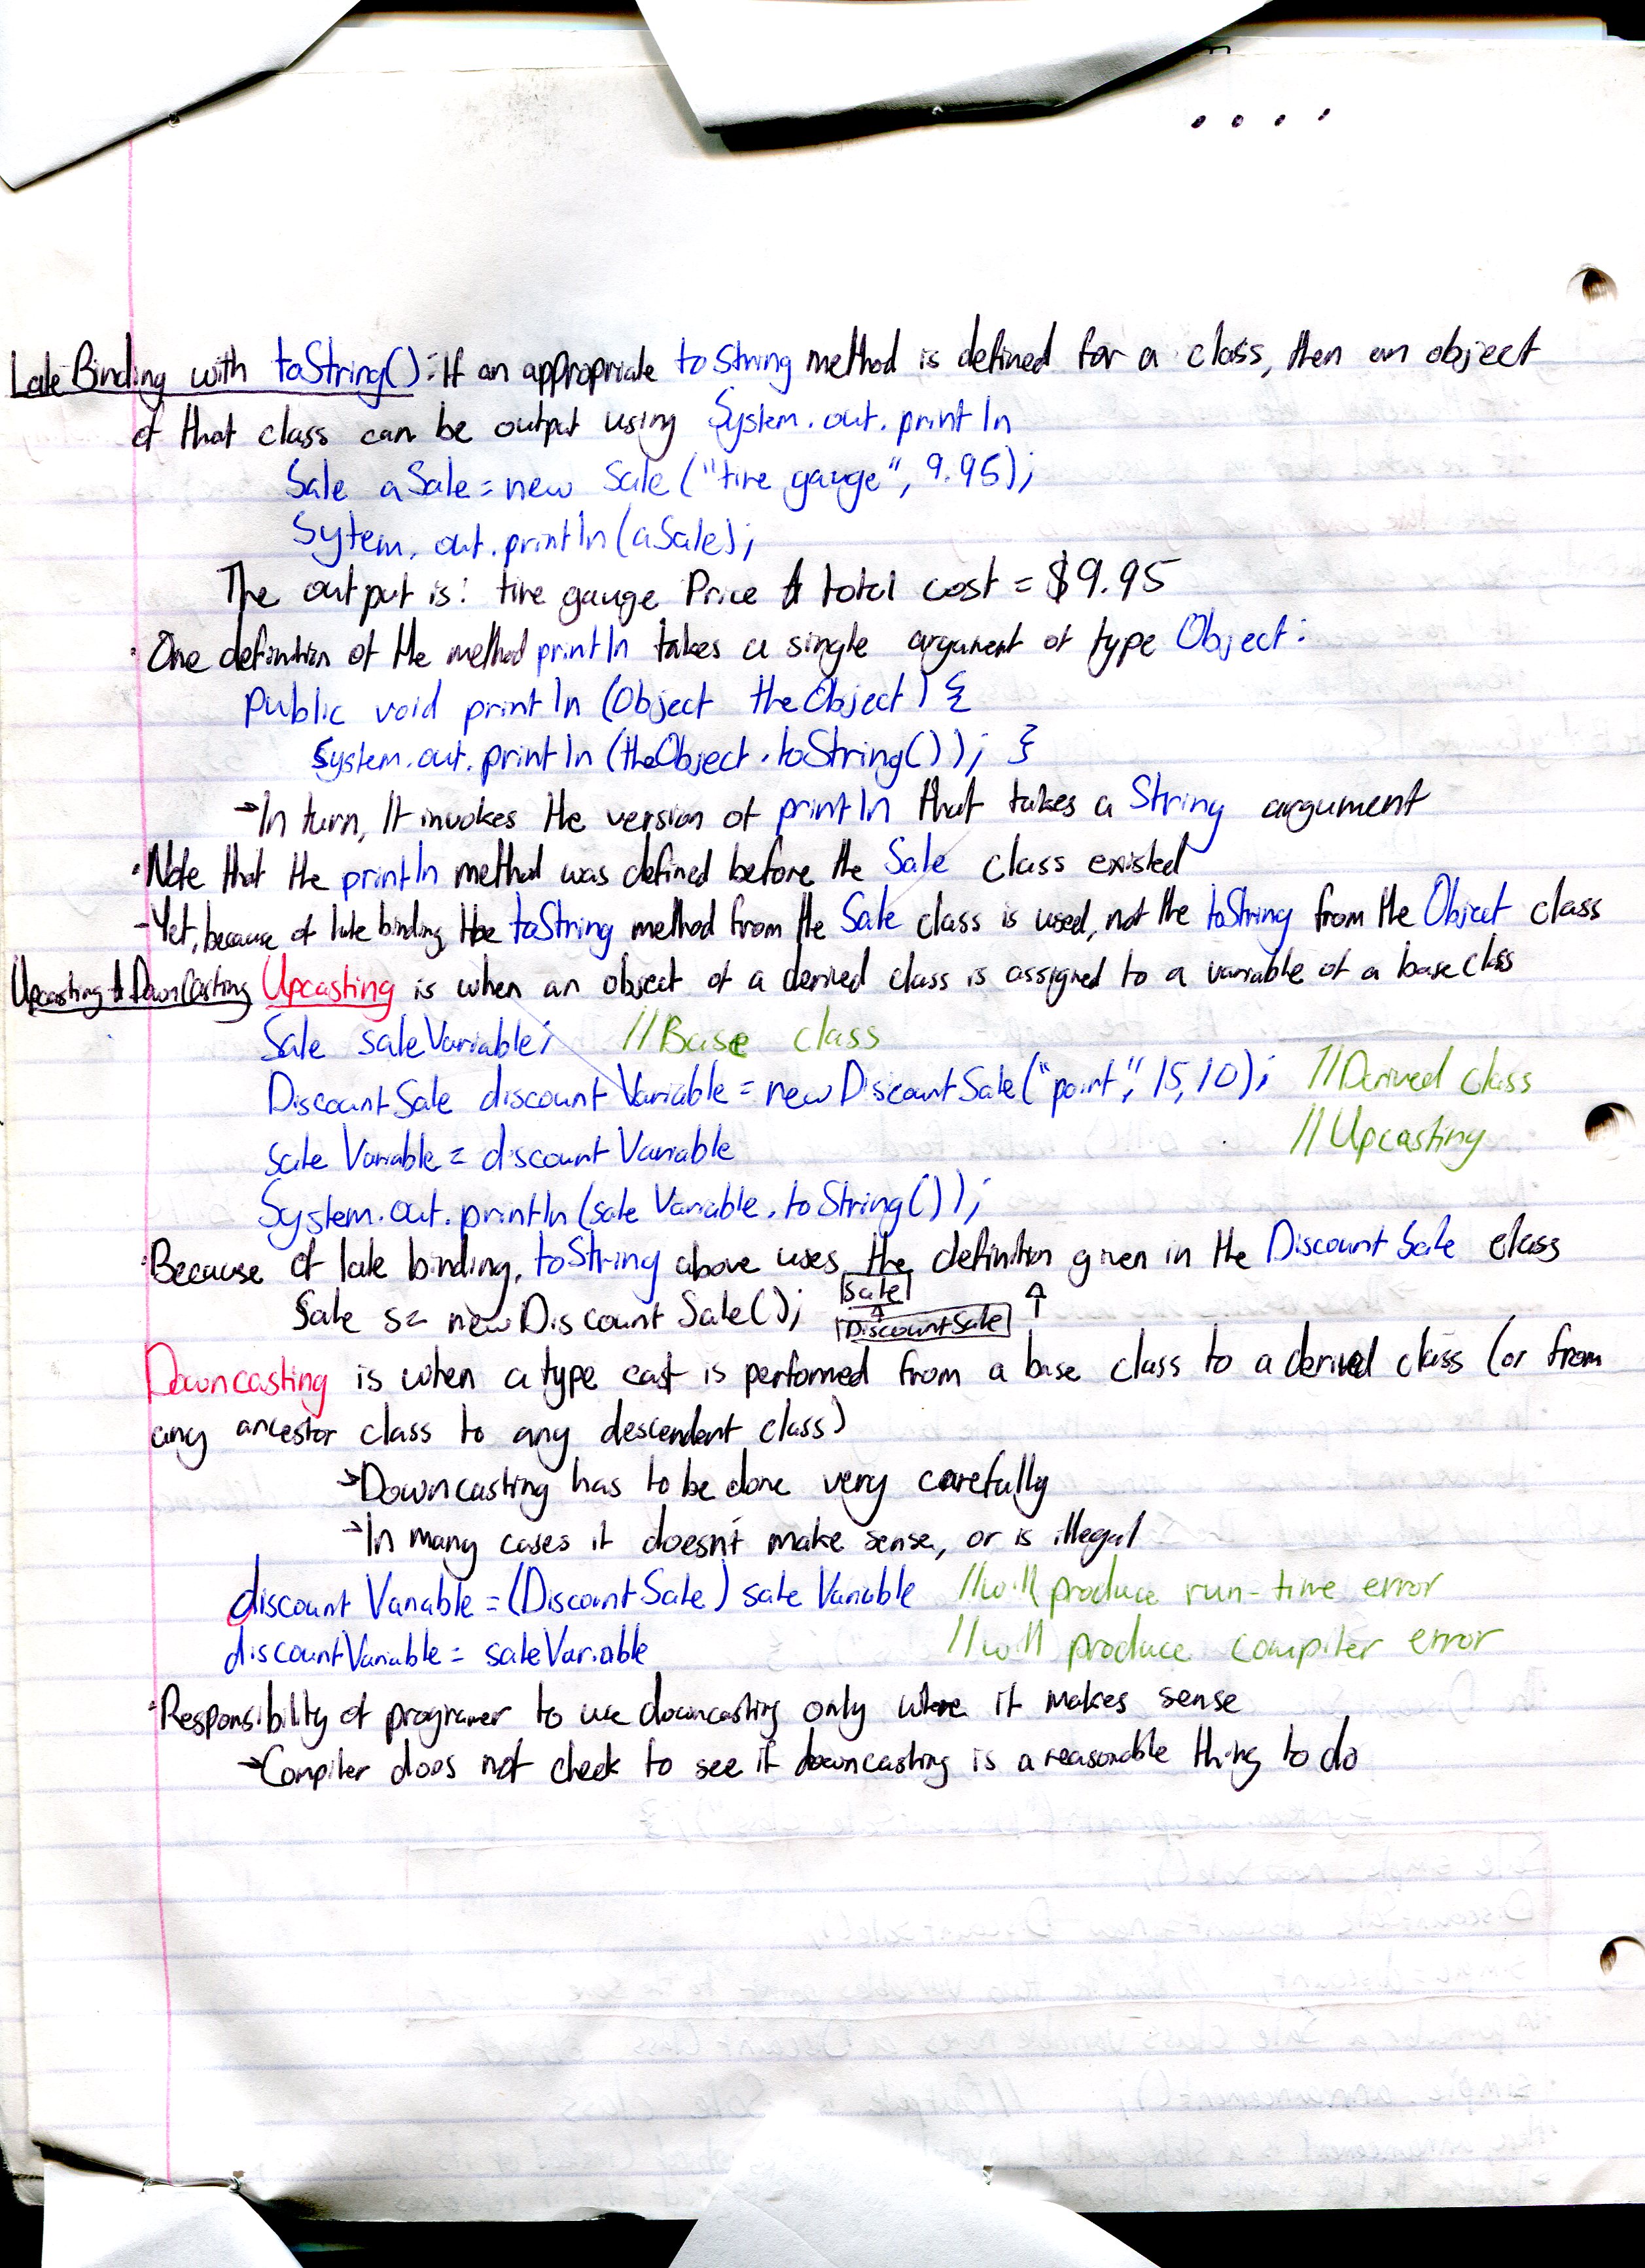 Late Binding with toString(): If an appropriate toString method is defined for a class, then an object
of that class can be output using System.out.println
Sale aSale = new Sale ("tire gauge", 9.95);
Sytem.out.println(aSale);
The output is: tire gauge Price & total cost = $9.95
• One definition of the method println takes a single argument of type Object:
Public void println (Object theObject) {
System.out.println (theObject.toString()); }
→In turn, It invokes the version of println that takes a String argument
• Note that the println method was defined before the Sale class existed
- Yet, because of late binding, the toString method from the Sale class is used, not the toString from the Object class
Upcasting & DownCasting Upcasting is when an object of a derived class is assigned to a variable of a base class
Sale saleVariable; //Base class
DiscountSale discountVariable = new DiscountSale("paint", 15, 10); //Derived class
saleVariable = discountVariable //Upcasting
System.out.println(saleVariable.toString());
• Because of late binding, toString above uses the definition given in the DiscountSale class
Sale s = new DiscountSale(); Sale ↑ DiscountSale ↑
Downcasting is when a type cast is performed from a base class to a derived class (or from
any ancestor class to any descendent class)
→Downcasting has to be done very carefully
→In many cases it doesn't make sense, or is illegal
discountVariable = (DiscountSale) saleVariable //will produce run-time error
discountVariable = saleVariable //will produce compiler error
• Responsibility of programer to use downcasting only where it makes sense
→Compiler does not check to see if downcasting is a reasonable thing to do